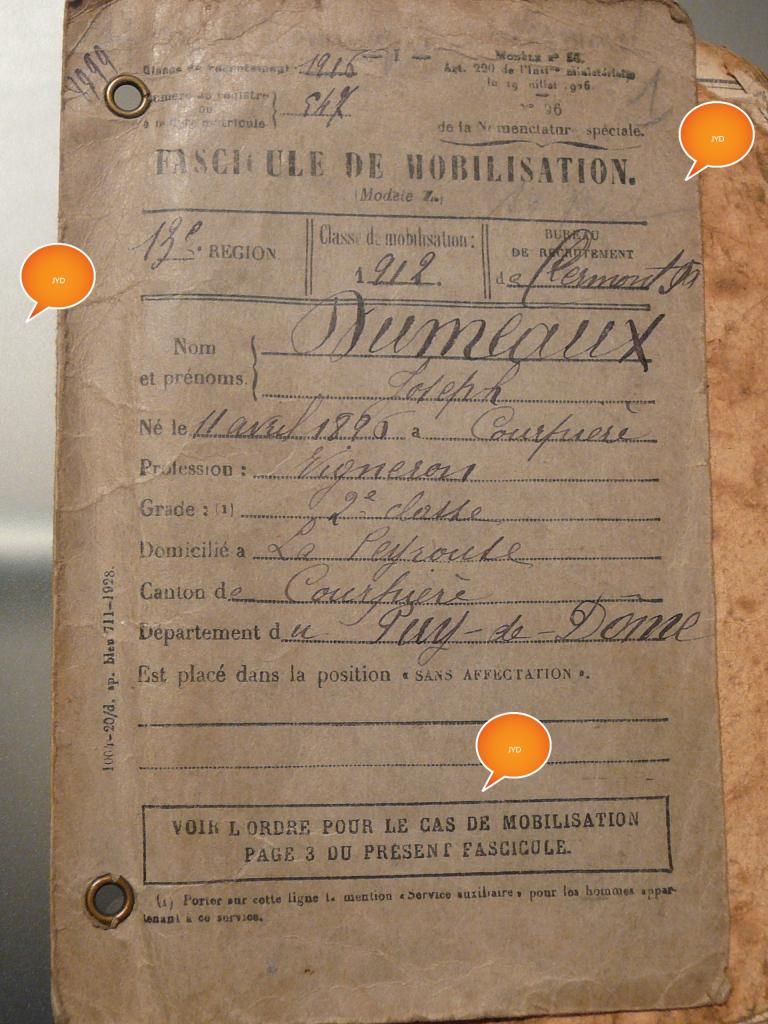 — I —
Classe de recrutement 1916
MODÈLE N° 26.
Art. 220 de l'Instron ministérielle
du 19 juillet 1926.
Numéro au registre
ou
à la liste matricule } 547
N° 26
de la Nomenclature spéciale.
FASCICULE DE MOBILISATION.
(Modèle Z.)
13e. RÉGION
Classe de mobilisation :
1912.
BUREAU
DE RECRUTEMENT
de Clermont Fd
Nom
et prénoms.
Dumeaux
Joseph
Né le 11 avril 1896 a Courpière
Profession : Vigneron
Grade : (1) 2e classe
Domicilié a La Peyrouse
Canton de Courpière
Département du Puy-de-Dôme
Est placé dans la position « SANS AFFECTATION ».
VOIR L'ORDRE POUR LE CAS DE MOBILISATION
PAGE 3 DU PRÉSENT FASCICULE.
(1) Porter sur cette ligne la mention « Service auxiliaire » pour les hommes appar-
tenant à ce service.
1004-20/d. sp. bleu 711-1928.
JYD
JYD
JYD